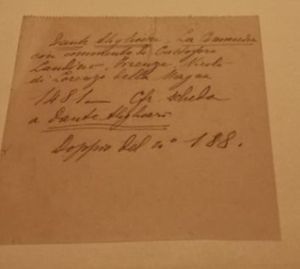 Dante Alighieri. La Commedia
con commento di Cristoforo
Landino, Firenze Nicolò
di Lorenzo della Magna
1481 — Cfr. scheda
a Dante Alighieri
Doppio del nº 188.